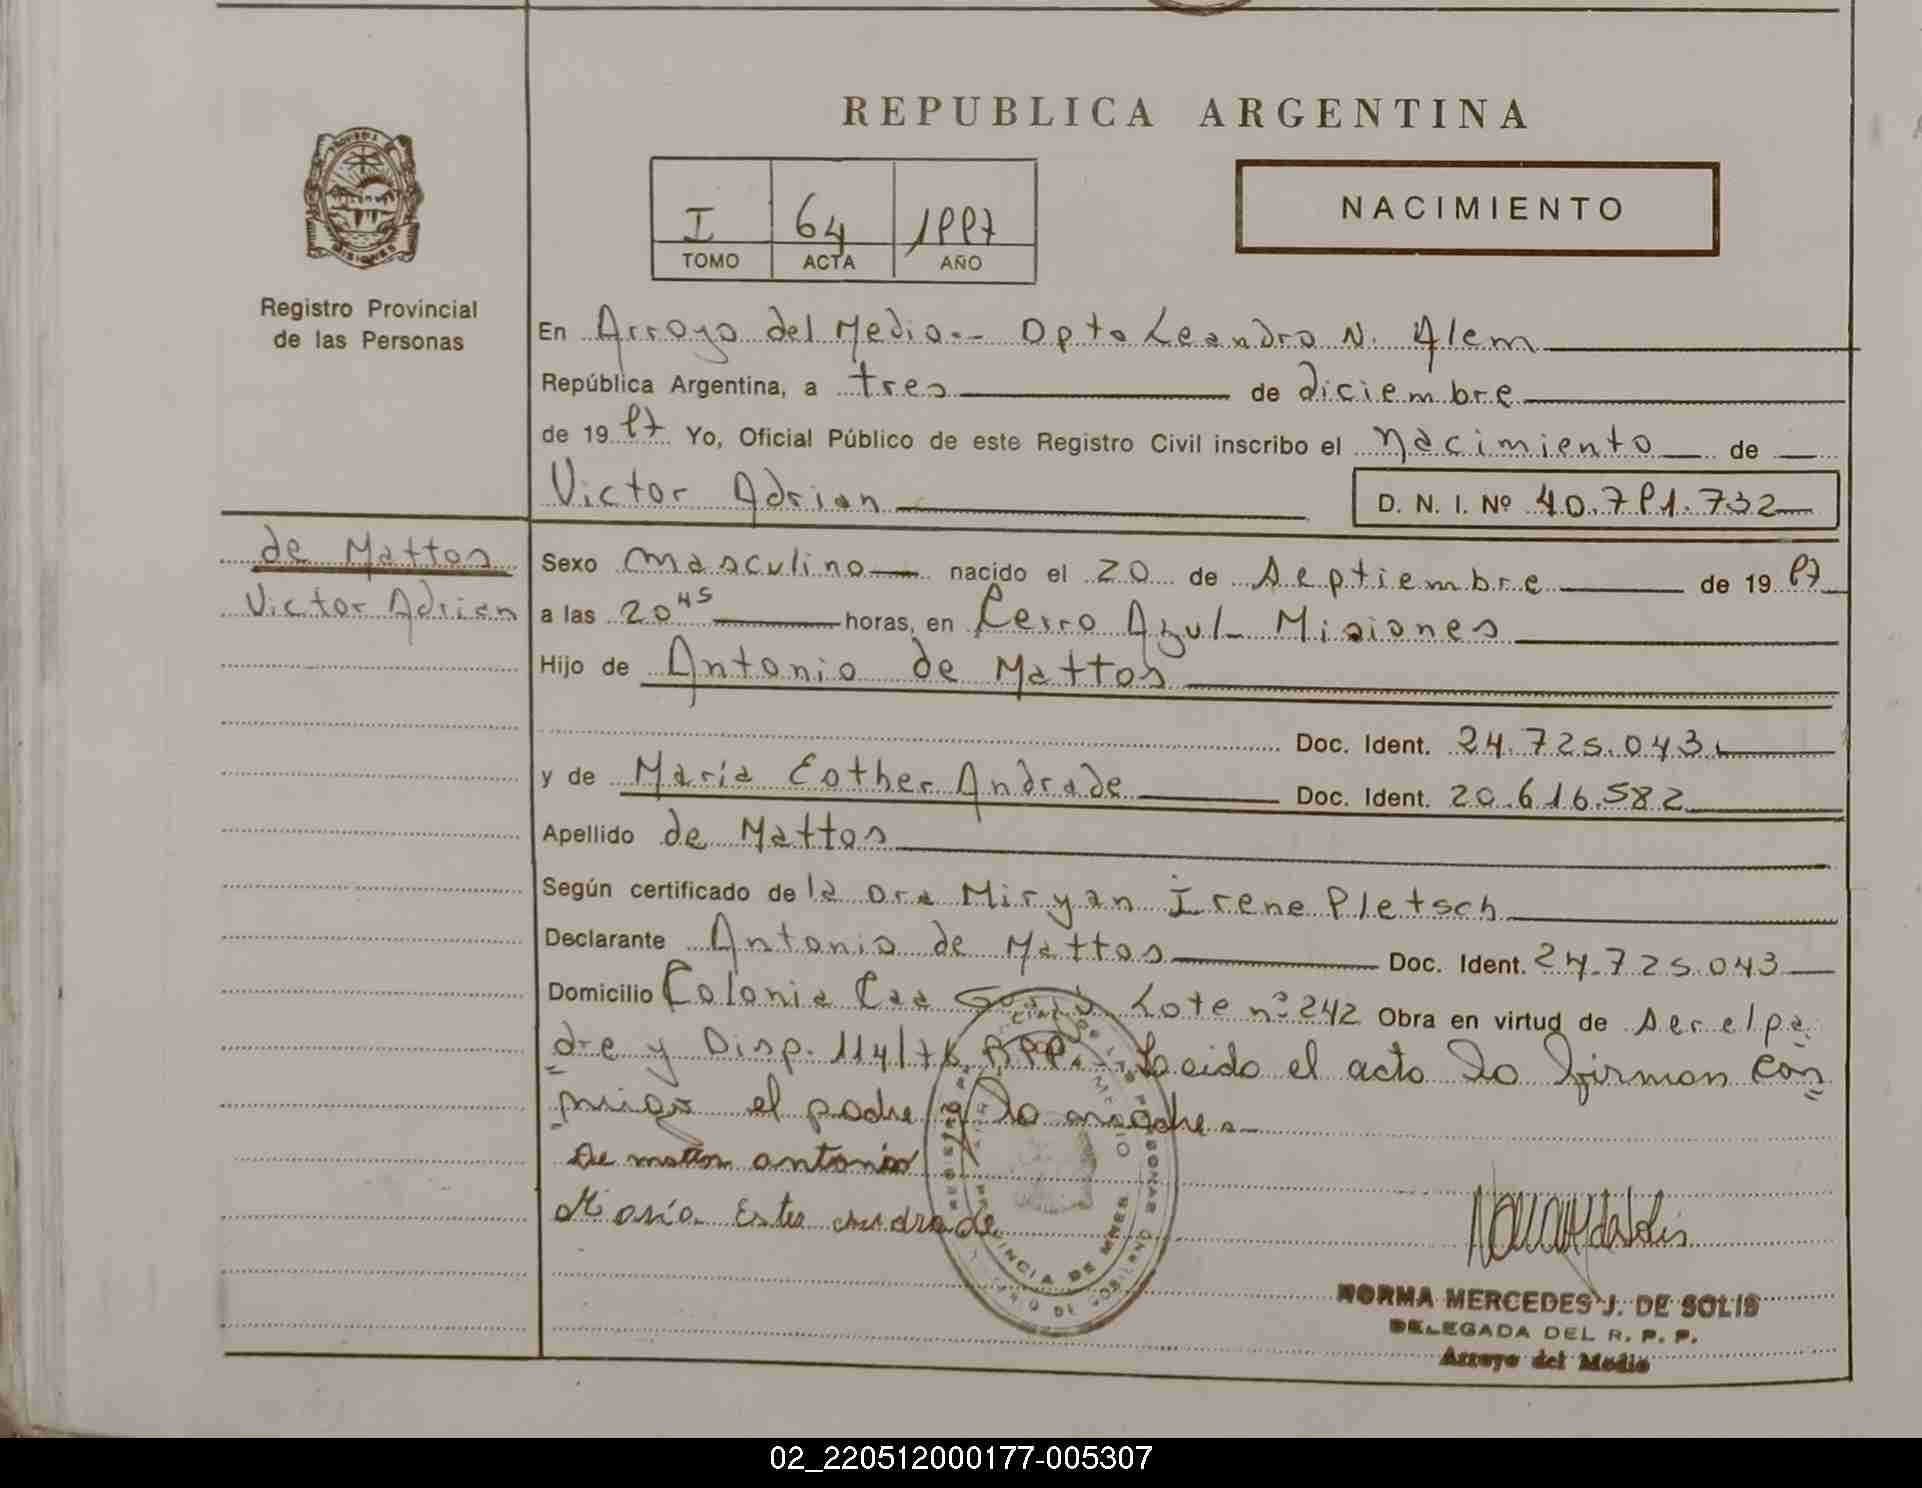 REPUBLICA ARGENTINA
MISIONES
Registro Provincial
de las Personas
I 64 1997
TOMO ACTA AÑO
NACIMIENTO
En Arroyo del Medio.- Dpto Leandro N. Alem
República Argentina, a tres de diciembre
de 19 97 Yo, Oficial Público de este Registro Civil inscribo el nacimiento de
Victor Adrian D. N. I. Nº 40.791.732
de Mattos
Victor Adrian
Sexo masculino nacido el 20 de septiembre de 19 97
a las 20 45 horas, en Cerro Azul - Misiones
Hijo de Antonio de Mattos
Doc. Ident. 24.725.043
y de Maria Esther Andrade Doc. Ident. 20.616.582
Apellido de Mattos
Según certificado de la Dra Miryan Irene Pletsch
Declarante Antonio de Mattos Doc. Ident. 24.725.043
Domicilio Colonia Caa Guazú Lote nº 242 Obra en virtud de ser el pa
dre y Disp. 114/76 RPP.- Leido el acta la firman con
migo el padre y la madre.-
De antonio
Maria Ester andrade
PROVINCIA DE MNES
NORMA MERCEDES J. DE SOLIS
DELEGADA DEL R. P. P.
Arroyo del Medio
02_220512000177-005307